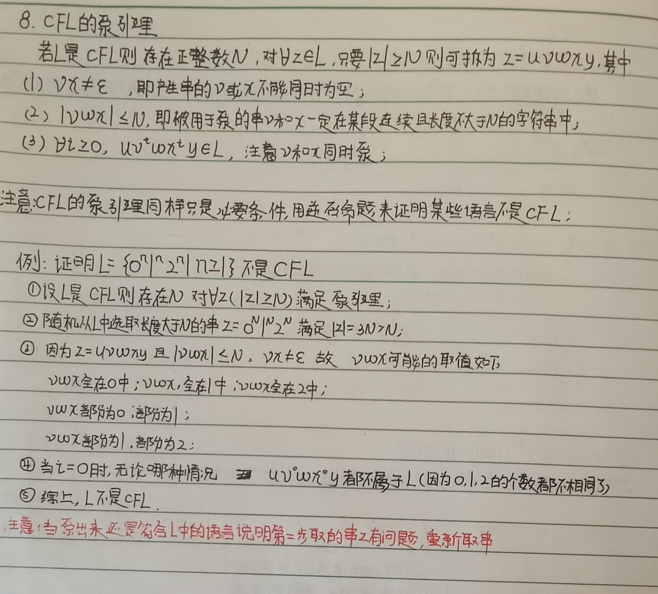 8. CFL的泵引理
若L是CFL则存在正整数N,对∀z∈L,只要|z|≥N则可拆为z=uvwxy,其中
(1) vx≠ε ,即产生串的v或x不能同时为空;
(2) |vwx|≤N,即被用于泵的串v和x一定在某段连续且长度不大于N的字符串中;
(3) ∀i≥0, uvⁱwxⁱy∈L, 注意v和x同时泵;
注意:CFL的泵引理同样只是必要条件,用逆否命题来证明某些语言不是CFL;
例:证明L={0ⁿ1ⁿ2ⁿ|n≥1}不是CFL
①设L是CFL则存在N 对∀z(|z|≥N)满足泵引理;
②随机从L中选取长度大于N的串z=0ᴺ1ᴺ2ᴺ 满足|z|=3N>N;
③因为z=uvwxy且|vwx|≤N, vx≠ε 故 vwx可能的取值如下
vwx全在0中;vwx,全在1中;vwx全在2中;
vwx部分为0,部分为1;
vwx部分为1,部分为2;
④当i=0时,无论哪种情况 uv⁰wx⁰y都不属于L(因为0,1,2的个数都不相同了)
⑤综上,L不是CFL.
注意:当泵出来还是符合L中的语言说明第二步取的串z有问题,重新取串